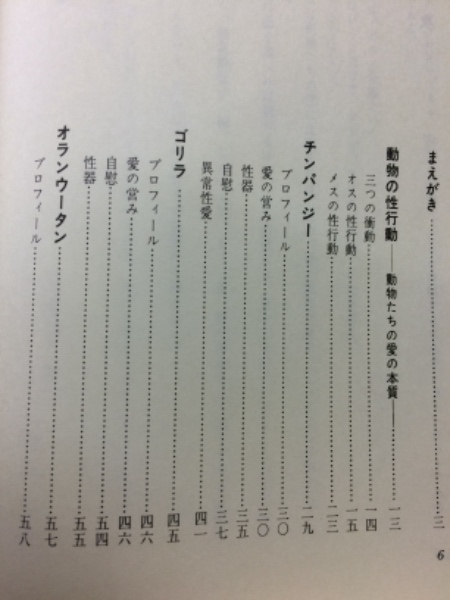 まえがき……三
動物の性行動――動物たちの愛の本質――……一三
三つの衝動……一四
オスの性行動……一五
メスの性行動……二三
チンパンジー……二九
プロフィール……三〇
愛の営み……三〇
性器……三五
自慰……三七
異常性愛……四一
ゴリラ……四五
プロフィール……四六
愛の営み……四六
自慰……五四
性器……五五
オランウータン……五七
プロフィール……五八
6